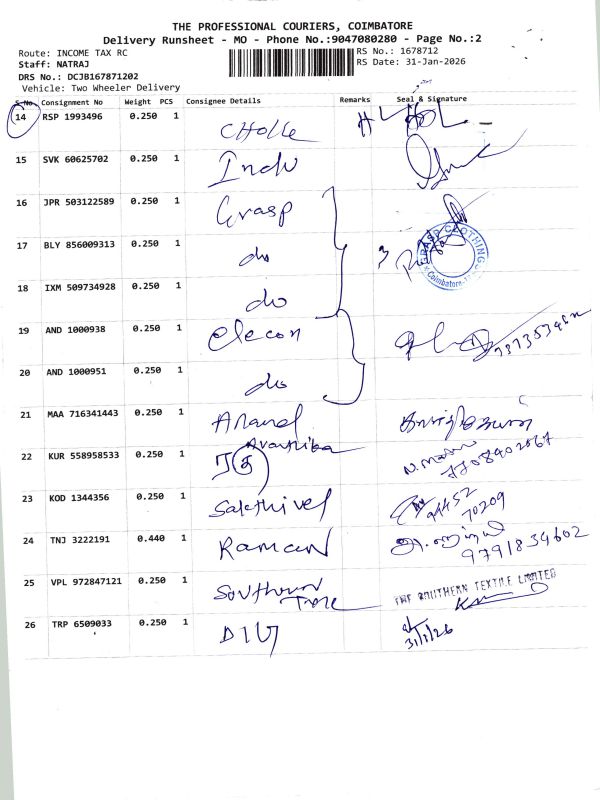 THE PROFESSIONAL COURIERS, COIMBATORE
Delivery Runsheet - MO - Phone No.:9047080280 - Page No.:2
Route: INCOME TAX RC
Staff: NATRAJ
DRS No.: DCJB167871202
Vehicle: Two Wheeler Delivery
RS No.: 1678712
RS Date: 31-Jan-2026
S.No. Consignment No Weight PCS Consignee Details Remarks Seal & Signature
14 RSP 1993496 0.250 1
15 SVK 60625702 0.250 1 Indu
16 JPR 503122589 0.250 1 Grasp
17 BLY 856009313 0.250 1 do
GRASP CLOTHINGS Coimbatore
18 IXM 509734928 0.250 1 do
19 AND 1000938 0.250 1 elecon
20 AND 1000951 0.250 1 do
21 MAA 716341443 0.250 1 Anand
22 KUR 558958533 0.250 1
23 KOD 1344356 0.250 1 Sakthivel 94452 70209
24 TNJ 3222191 0.440 1 Raman 9791834602
25 VPL 972847121 0.250 1 Southern THE SOUTHERN TEXTILE LIMITED
26 TRP 6509033 0.250 1 DIG 31/1/26